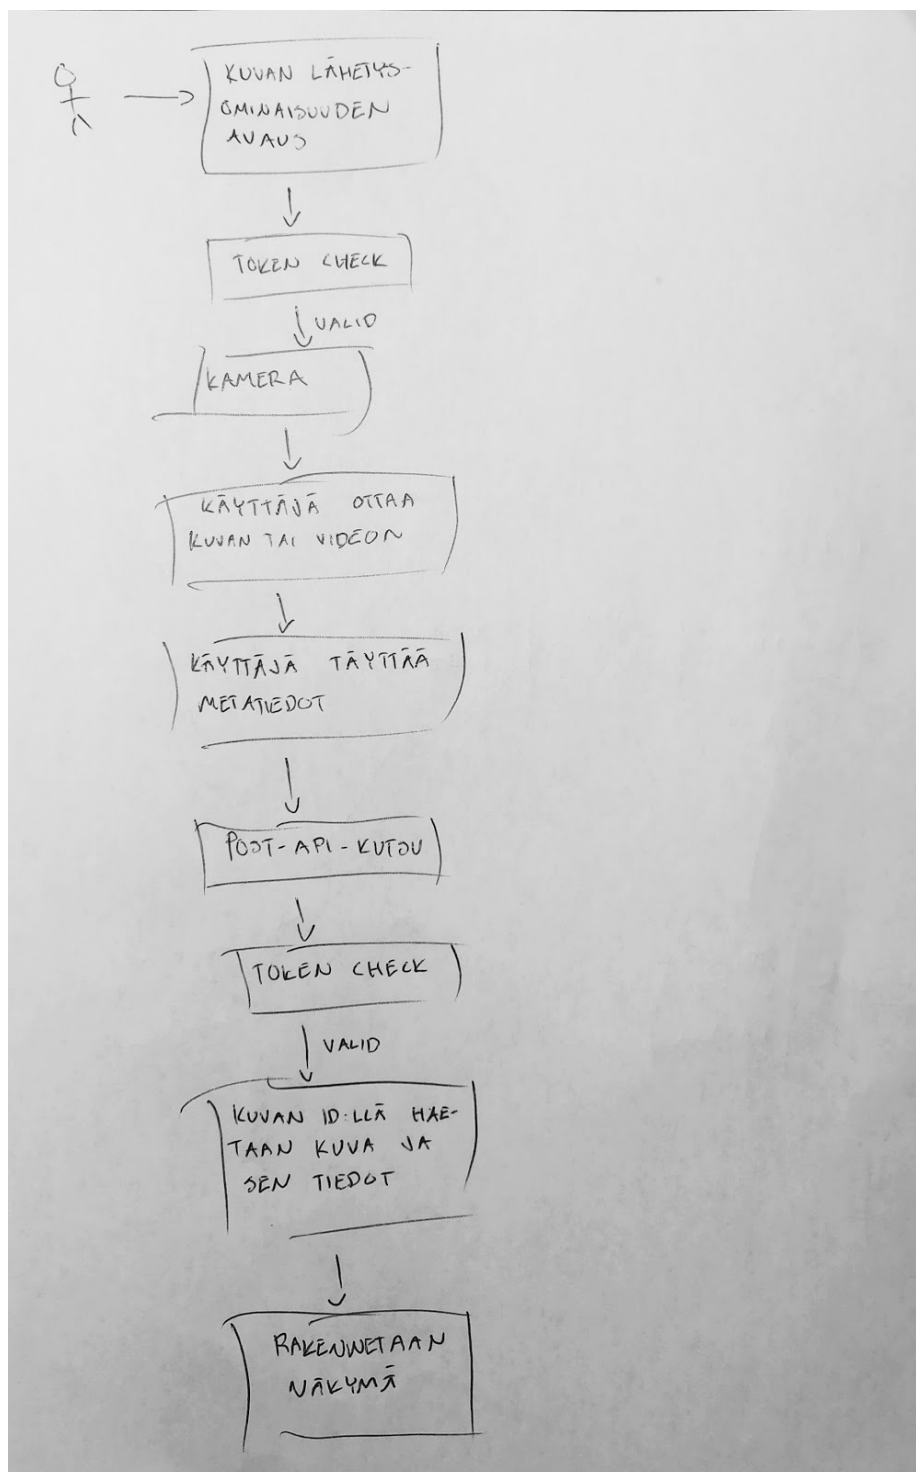 KUVAN LÄHETYS-
OMINAISUUDEN
AVAUS
TOKEN CHECK
VALID
KAMERA
KÄYTTÄJÄ OTTAA
KUVAN TAI VIDEON
KÄYTTÄJÄ TÄYTTÄÄ
METATIEDOT
POST-API-KUTSU
TOKEN CHECK
VALID
KUVAN ID:LLÄ HAE-
TAAN KUVA JA
SEN TIEDOT
RAKENNETAAN
NÄKYMÄ